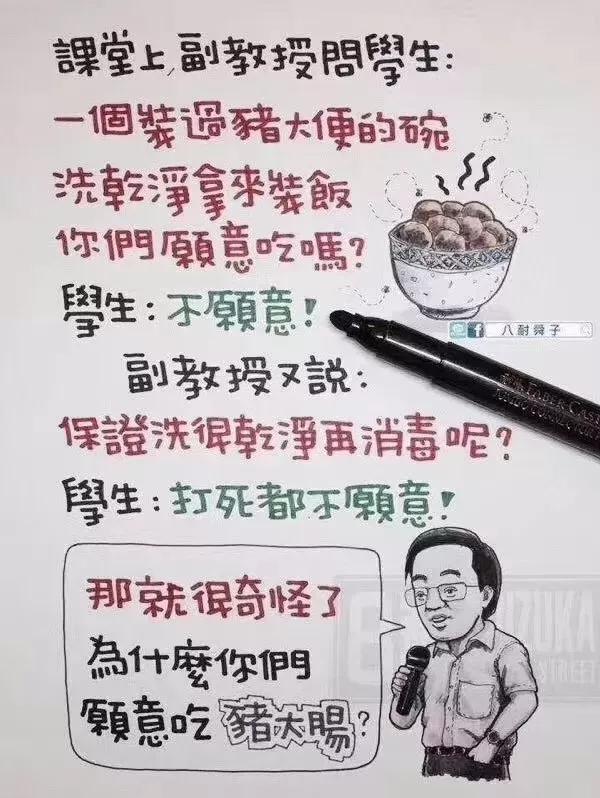 課堂上,副教授問學生:
一個裝過豬大便的碗
洗乾淨拿來裝飯
你們願意吃嗎?
學生:不願意!
八耐舜子
副教授又說:
保證洗得乾淨再消毒呢?
學生:打死都不願意!
那就得奇怪了
為什麼你們
願意吃豬大腸?